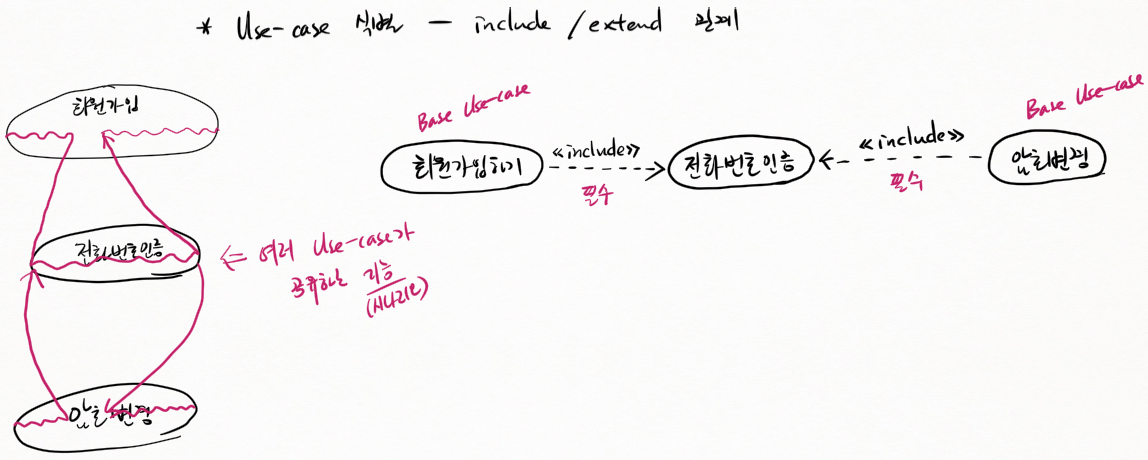 * Use-case 식별 - include / extend 관계
회원가입
전화번호인증
암호변경
⇐ 여러 Use-case가
공유하는 기능
(시나리오)
Base Use-case
회원가입하기
«include»
필수
전화번호인증
«include»
필수
Base Use-case
암호변경